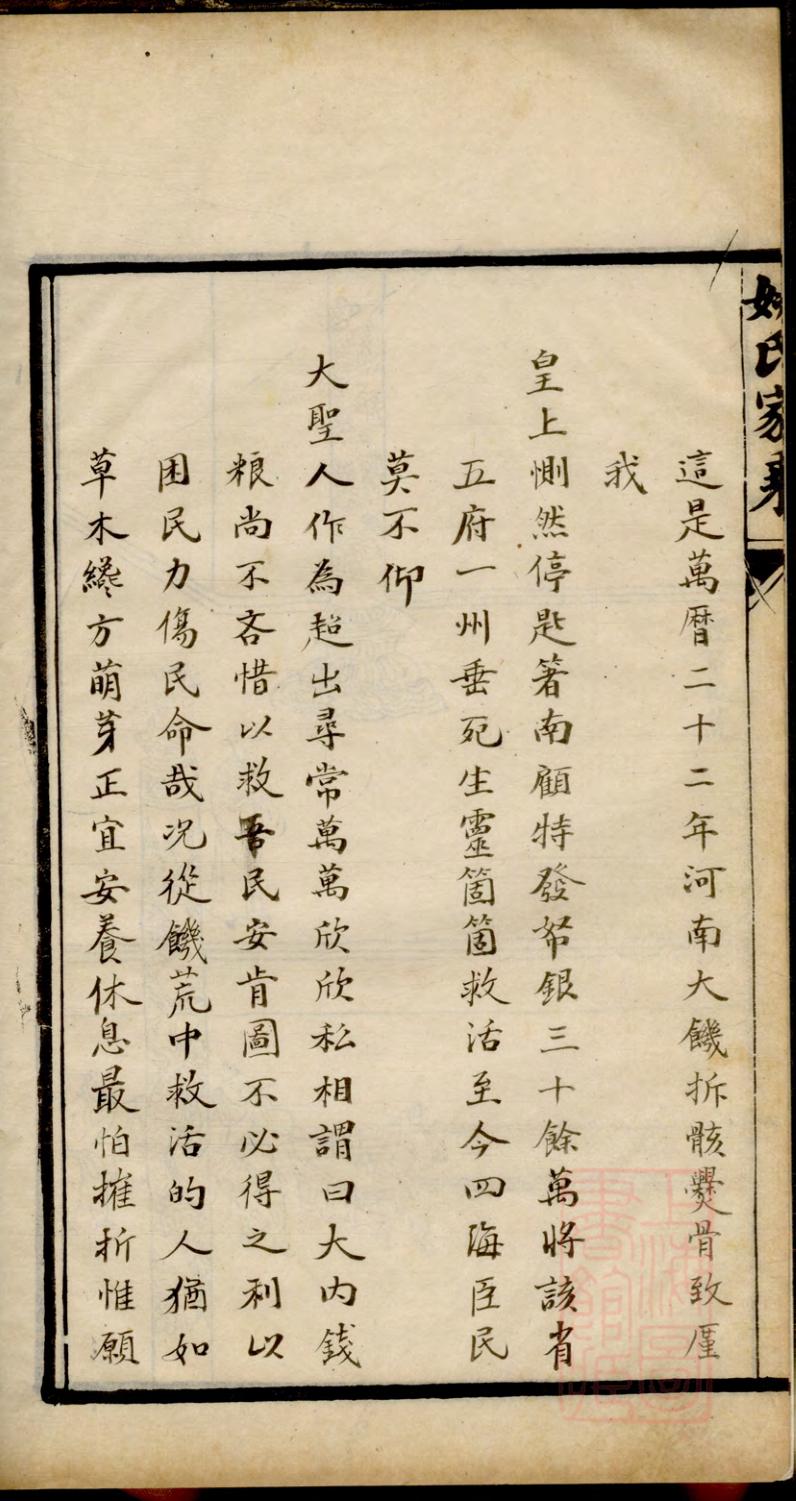 姚氏家乘
這是萬曆二十二年河南大饑拆骸爨骨致厪
我
皇上惻然停匙箸南顧特發帑銀三十餘萬將該省
五府一州垂死生靈箇箇救活至今四海臣民
莫不仰
大聖人作為超出尋常萬萬欣欣私相謂曰大内錢
粮尚不吝惜以救吾民安肯圖不必得之利以
困民力傷民命哉况從饑荒中救活的人猶如
草木纔方萌芽正宜安養休息最怕摧折惟願
上海圖書館藏